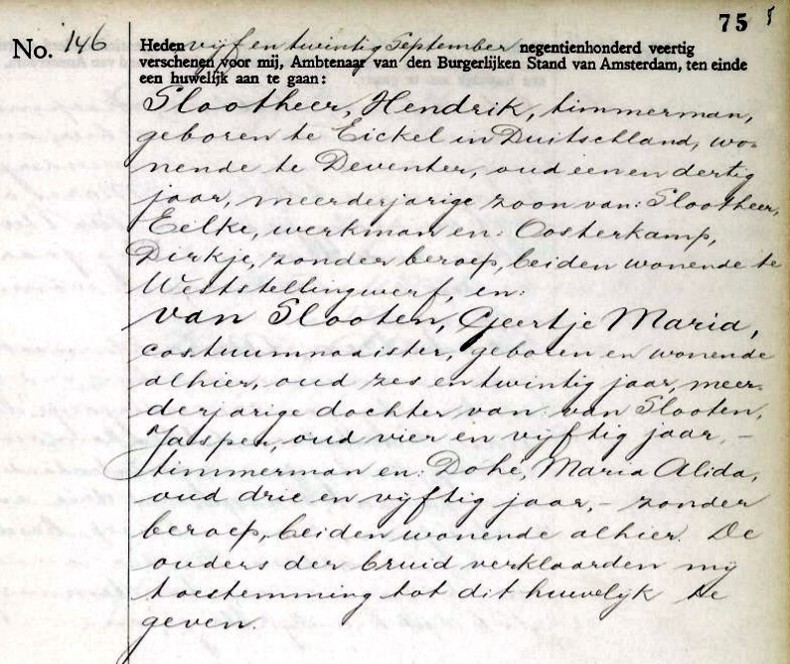 75
No. 146
Heden vijf en twintig September negentienhonderd veertig
verschenen voor mij, Ambtenaar van den Burgerlijken Stand van Amsterdam, ten einde
een huwelijk aan te gaan:
Slootheer, Hendrik, timmerman,
geboren te Eickel in Duitschland, wo-
nende te Deventer, oud een en dertig
jaar, meerderjarige zoon van: Slootheer,
Eelke, werkman en: Oosterkamp,
Dirkje, zonder beroep, beiden wonende te
Weststellingwerf, en:
van Slooten, Geertje Maria,
costuumnaaister, geboren en wonende
alhier, oud zes en twintig jaar, meer-
derjarige dochter van: van Slooten,
Jasper, oud vier en vijftig jaar, -
timmerman en: Dohe, Maria Alida,
oud drie en vijftig jaar, - zonder
beroep, beiden wonende alhier. De
ouders der bruid verklaarden mij
toestemming tot dit huwelijk te
geven.